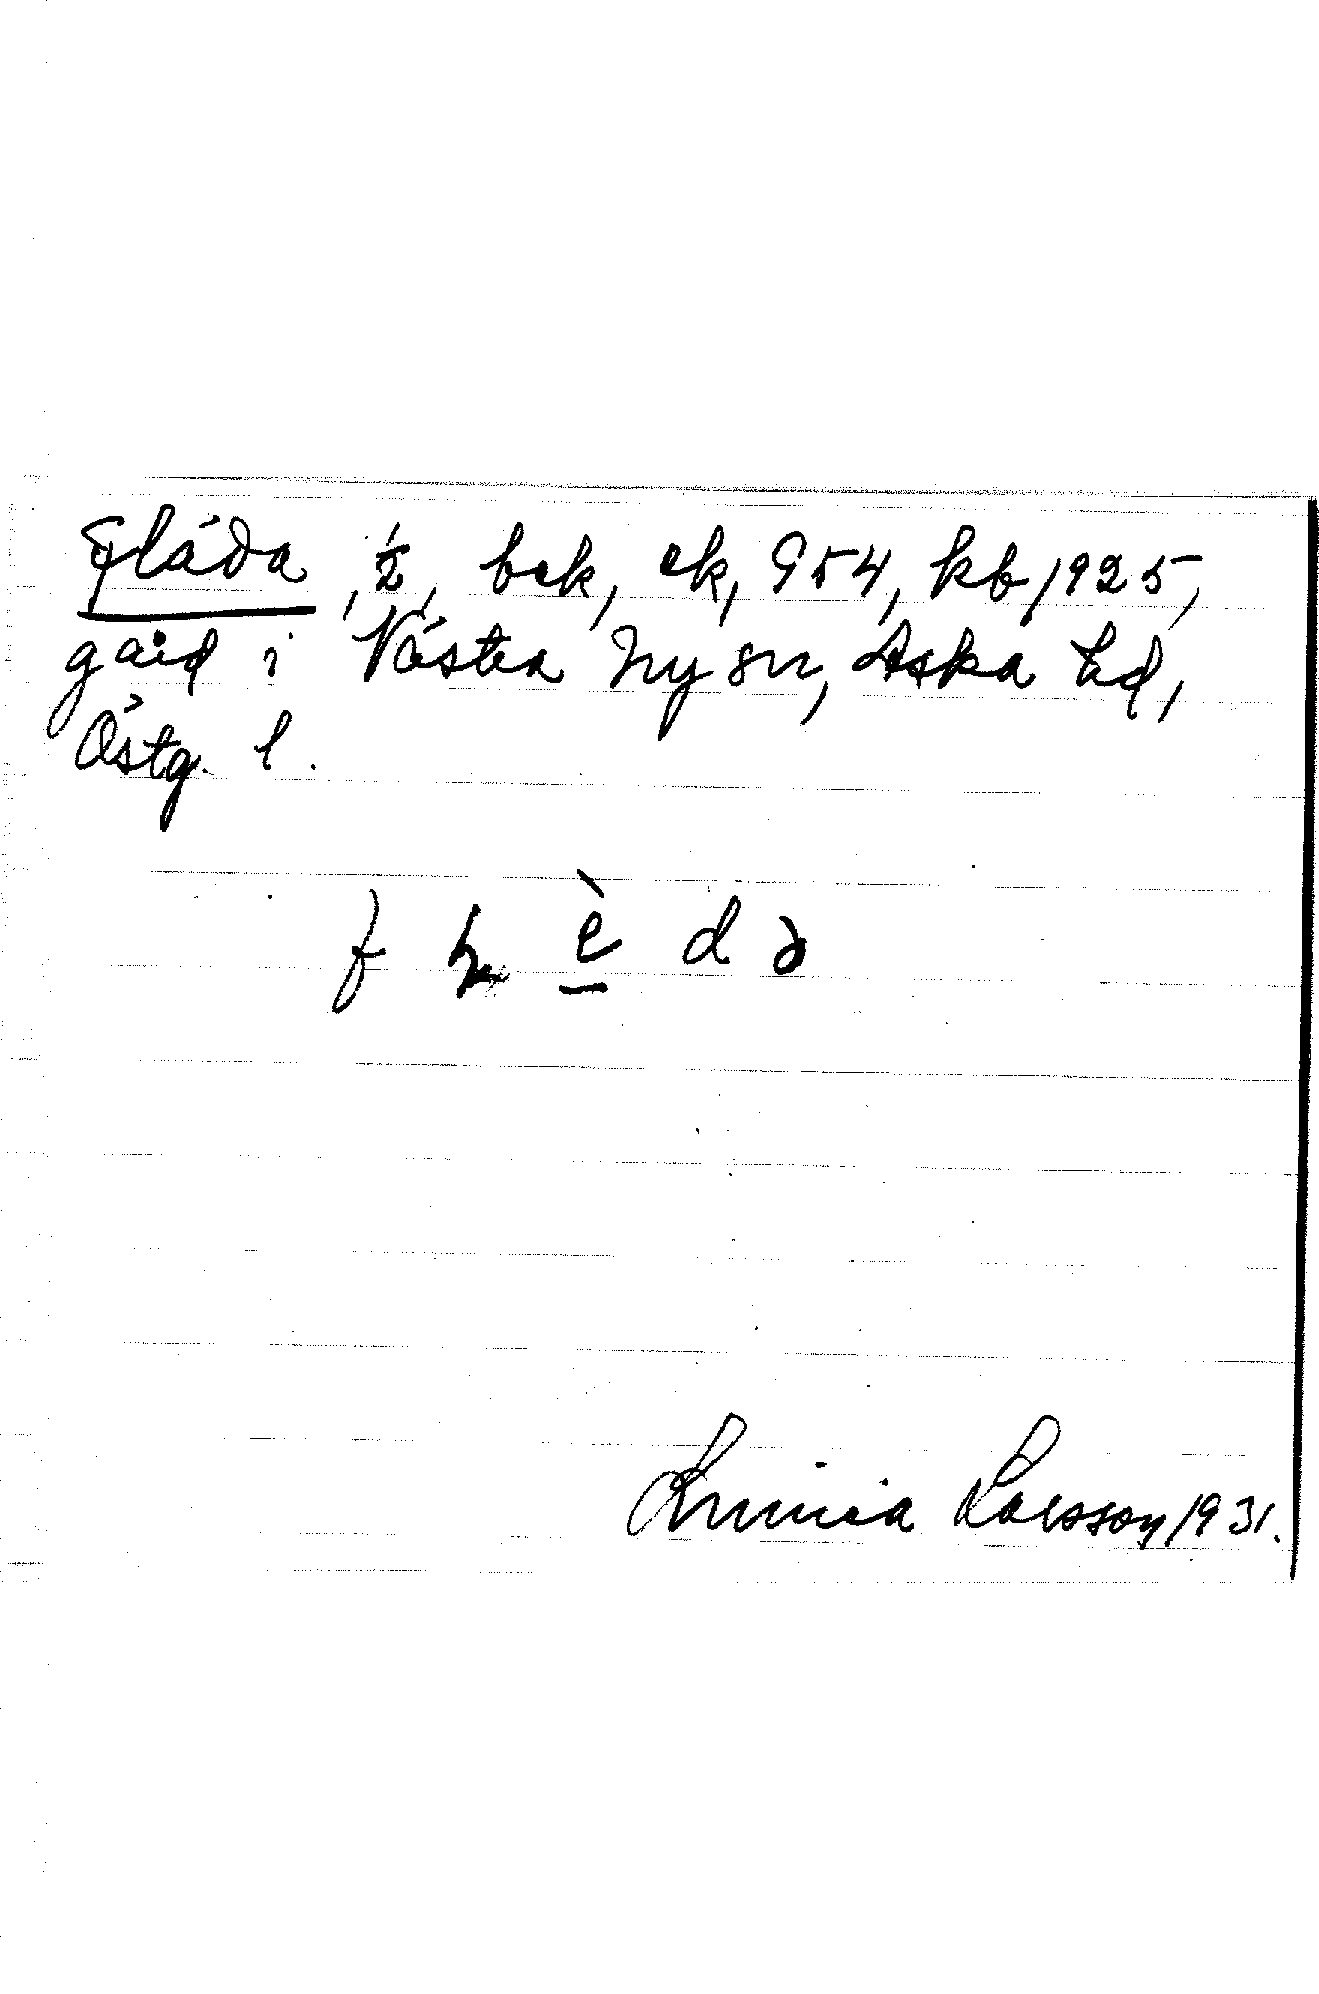 Fläda, ½, bek, ek, 954, kb 1925,
gård i Västra Ny sn, Aska hd,
Östg. l.
Linnéa Larsson 1931.